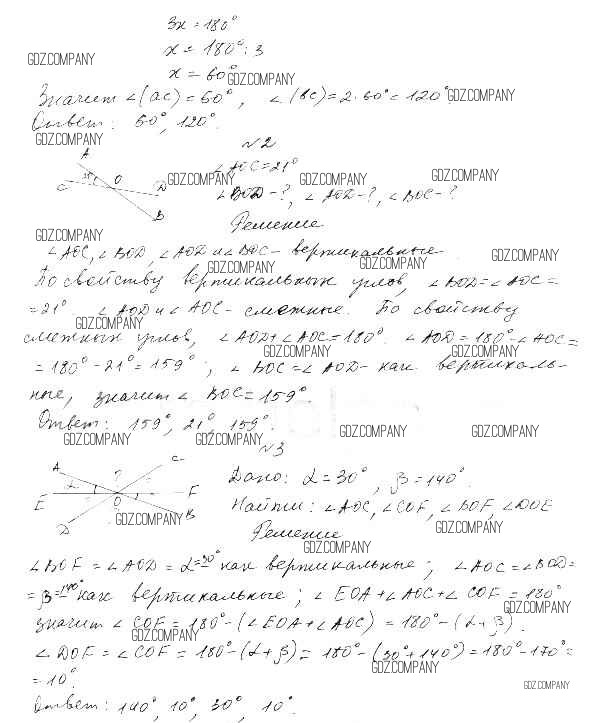 3x = 180°
x = 180° : 3
GDZ.COMPANY
x = 60°
GDZ.COMPANY
Значит ∠(ac) = 60°, ∠(bc) = 2·60° = 120°
GDZ.COMPANY
Ответ: 60°, 120°.
GDZ.COMPANY
№2
A
C
O
D
B
∠AOC = 21°
GDZ.COMPANY
GDZ.COMPANY
GDZ.COMPANY
∠BOD - ?, ∠AOD - ?, ∠BOC - ?
Решение
GDZ.COMPANY
∠AOC, ∠BOD, ∠AOD и ∠BOC - вертикальные
GDZ.COMPANY
GDZ.COMPANY
GDZ.COMPANY
По свойству вертикальных углов, ∠BOD = ∠AOC =
= 21° ∠AOD и ∠AOC - смежные. По свойству
GDZ.COMPANY
смежных углов, ∠AOD + ∠AOC = 180°. ∠AOD = 180° - ∠AOC =
GDZ.COMPANY
GDZ.COMPANY
= 180° - 21° = 159°; ∠BOC = ∠AOD - как вертикаль-
ные, значит ∠BOC = 159°
Ответ: 159°, 21°, 159°.
GDZ.COMPANY
GDZ.COMPANY
GDZ.COMPANY
GDZ.COMPANY
№3
A
C
?
α
E
O
F
D
B
GDZ.COMPANY
Дано: α = 30°, β = 140°.
Найти: ∠AOC, ∠COF, ∠BOF, ∠DOE
GDZ.COMPANY
Решение
GDZ.COMPANY
∠BOF = ∠AOD = α = 30° как вертикальные; ∠AOC = ∠BOD =
= β = 140° как вертикальные; ∠EOA + ∠AOC + ∠COF = 180°
GDZ.COMPANY
значит ∠COF = 180° - (∠EOA + ∠AOC) = 180° - (α + β).
GDZ.COMPANY
∠DOF = ∠COF = 180° - (α + β) = 180° - (30° + 140°) = 180° - 170° =
GDZ.COMPANY
= 10°
GDZ.COMPANY
Ответ: 140°, 10°, 30°, 10°.